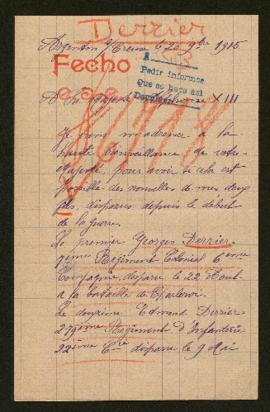 Derrier
Argenton s/ Creuse le 20 9bre 1915
Fecho
A
Pedir informes
Que se hace así
A Sa Majesté XIII
Je viens m'adresser à la
haute bienveillance de votre
Majesté, pour avoir si cela est
possible des nouvelles de mes deux
fils, disparus depuis le début
de la guerre.
Le premier Georges Derrier,
Régiment Colonial 6eme
Compagnie disparu le 22 Août
à la bataille de Charleroi.
Le deuxième Edmond Derrier
279eme Régiment d'Infanterie
22ieme Cie disparu le 9 Mai